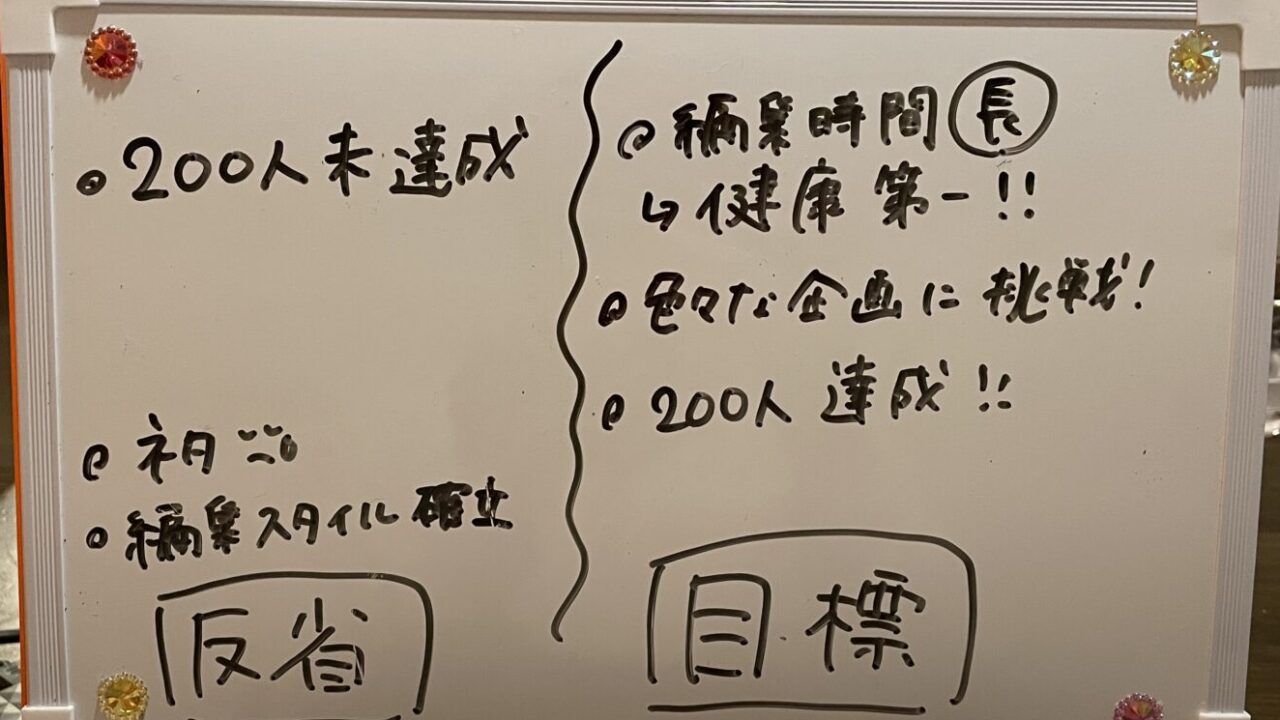 ・200人未達成
・ネタ
・編集スタイル確立
反省
・編集時間 長
↳健康第一!!
・色々な企画に挑戦!
・200人達成!!
目標